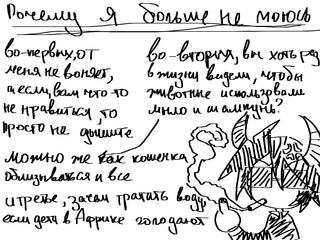 Почему я больше не моюсь
во-первых, от
меня не воняет,
а если вам что-то
не нравиться, то
просто не дышите
во-вторых, вы хоть раз
в жизни видели, чтобы
животные использовали
мыло и шампунь?
можно же как кошечка
облизываться и все
и третье, зачем тратить воду
если дети в Африке голодают